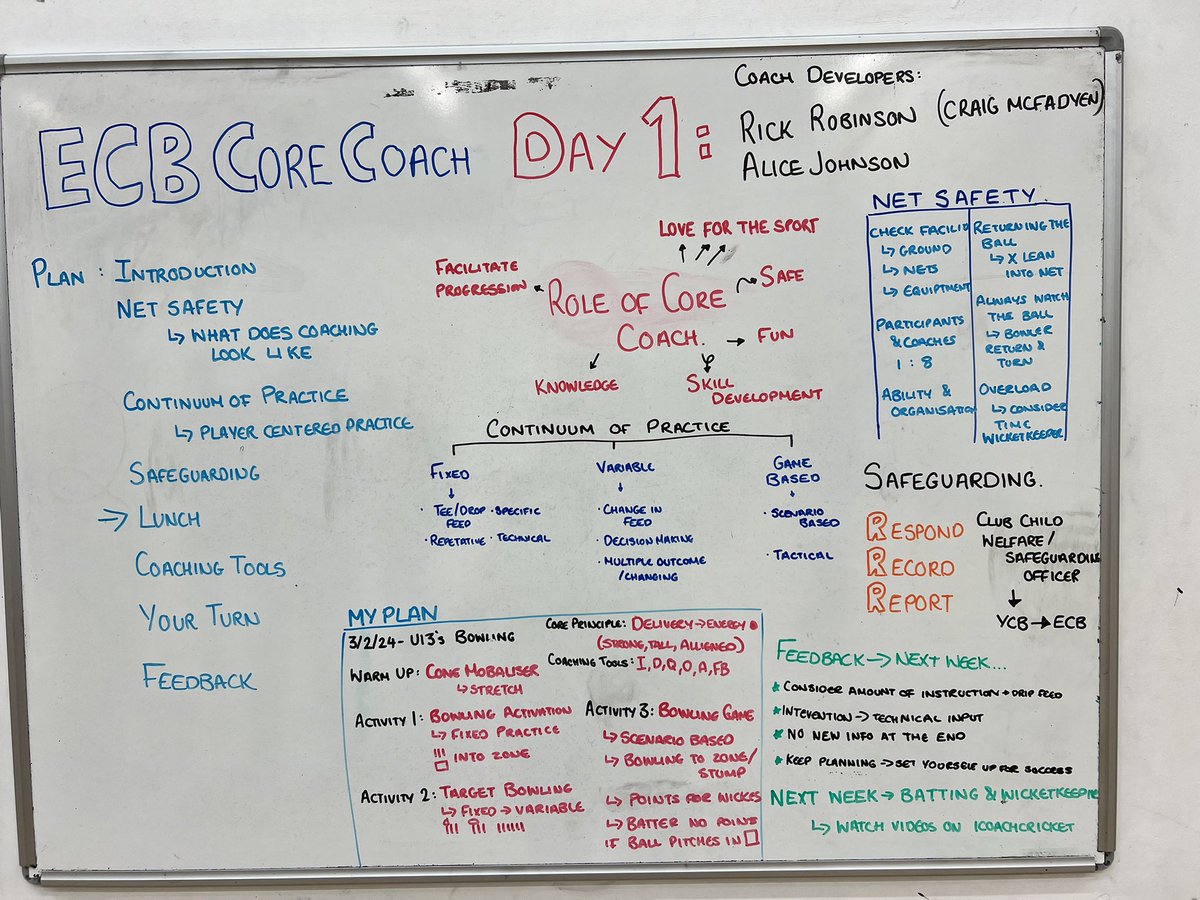 ECB CORE COACH DAY 1:
COACH DEVELOPERS:
RICK ROBINSON (CRAIG MCFADYEN)
ALICE JOHNSON
PLAN : INTRODUCTION
NET SAFETY
↳ WHAT DOES COACHING
LOOK LIKE
CONTINUUM OF PRACTICE
↳ PLAYER CENTERED PRACTICE
SAFEGUARDING
→ LUNCH
COACHING TOOLS
YOUR TURN
FEEDBACK
LOVE FOR THE SPORT
FACILITATE
PROGRESSION
SAFE
ROLE OF CORE
COACH.
→ FUN
KNOWLEDGE
SKILL
DEVELOPMENT
CONTINUUM OF PRACTICE
FIXED
· TEE/DROP · SPECIFIC
FEED
· REPETATIVE · TECHNICAL
VARIABLE
· CHANGE IN
FEED
· DECISION MAKING
· MULTIPLE OUTCOME
/CHANGING
GAME
BASED
· SCENARIO
BASED
· TACTICAL
NET SAFETY.
CHECK FACILIT
↳ GROUND
↳ NETS
↳ EQUIPTMENT
PARTICIPANTS
& COACHES
1 : 8
ABILITY &
ORGANISATION
RETURNING THE
BALL
↳ X LEAN
INTO NET
ALWAYS WATCH
THE BALL
↳ BOWLER
RETURN &
TURN
OVERLOAD
↳ CONSIDER
TIME
WICKETKEEPER
SAFEGUARDING.
RESPOND
RECORD
REPORT
CLUB CHILD
WELFARE/
SAFEGUARDING
OFFICER
YCB → ECB
MY PLAN
3/2/24 - U13's BOWLING
WARM UP: CONE MOBALISER
↳ STRETCH
ACTIVITY 1: BOWLING ACTIVATION
↳ FIXED PRACTICE
INTO ZONE
ACTIVITY 2: TARGET BOWLING
↳ FIXED → VARIABLE
CORE PRINCIPLE: DELIVERY → ENERGY
(STRONG, TALL, ALLIGNED)
COACHING TOOLS: I, D, Q, O, A, FB
ACTIVITY 3: BOWLING GAME
↳ SCENARIO BASED
↳ BOWLING TO ZONE/
STUMP
↳ POINTS FOR WICKES
↳ BATTER NO POINT
IF BALL PITCHES IN
FEEDBACK → NEXT WEEK....
* CONSIDER AMOUNT OF INSTRUCTION → DRIP FEED
* INTEVENTION → TECHNICAL INPUT
* NO NEW INFO AT THE END
* KEEP PLANNING → SET YOURSELF UP FOR SUCCESS
NEXT WEEK → BATTING & WICKETKEEPIN
↳ WATCH VIDEOS ON ICOACHCRICKET